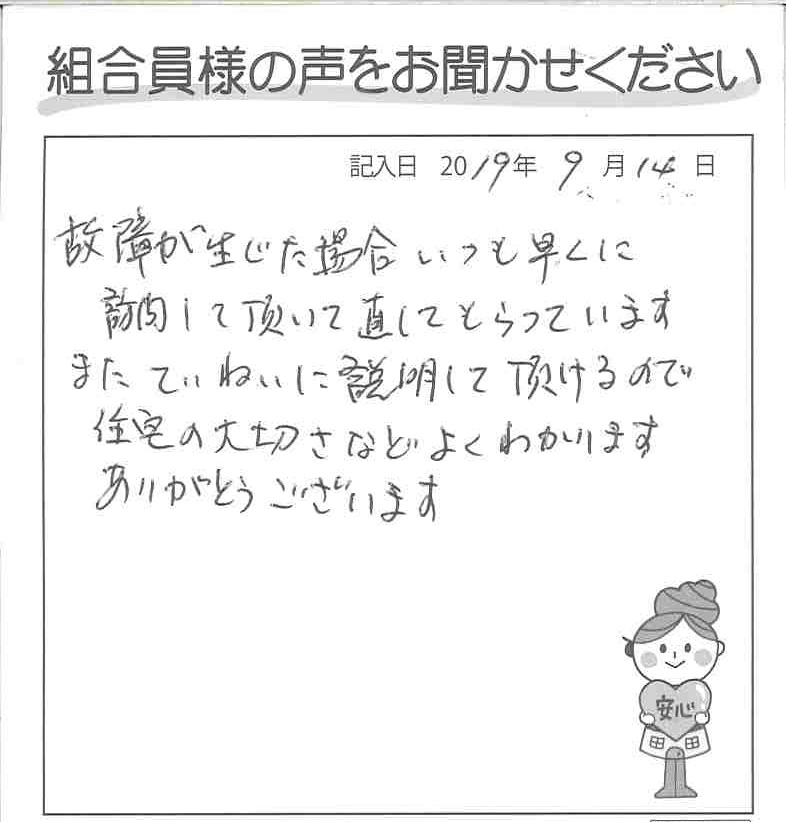 組合員様の声をお聞かせください
記入日 2019年 9月14日
故障が生じた場合いつも早くに
訪問して頂いて直してもらっています
またていねいに説明して頂けるので
住宅の大切さなどよくわかります
ありがとうございます
安心